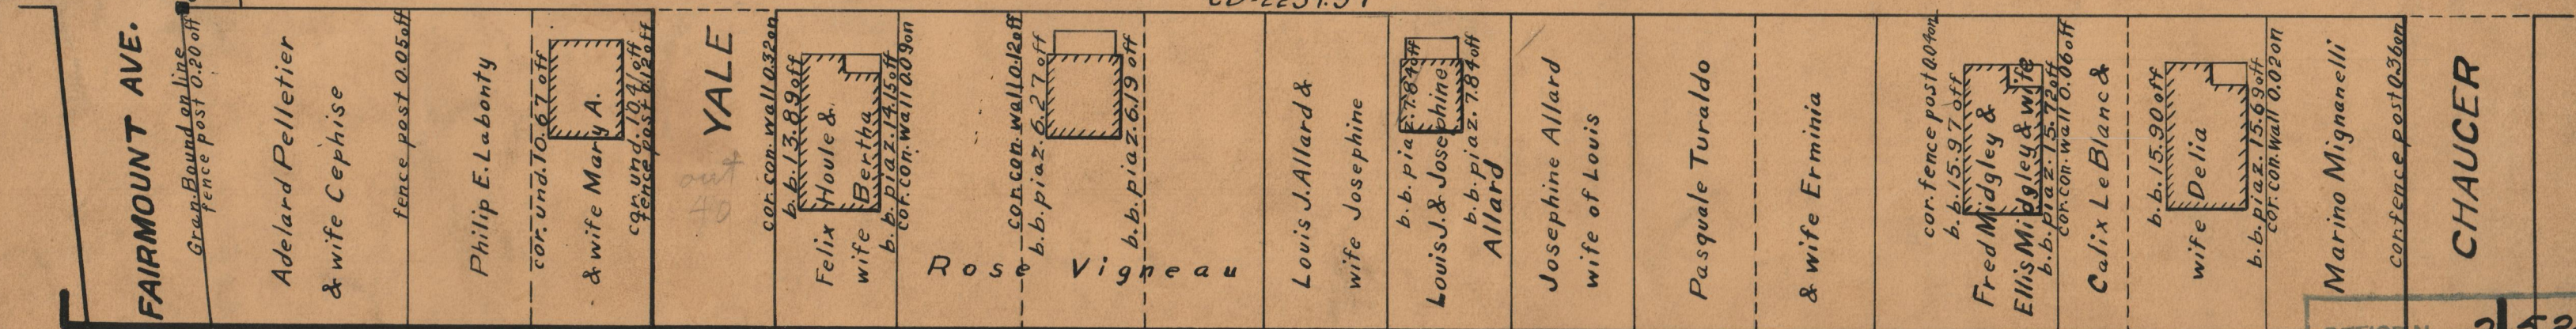 FAIRMOUNT AVE.
Gran. Bound on line
fence post 0.20 off
Adelard Pelletier
& wife Cephise
fence post 0.05 off
Philip E. Labonty
& wife Mary A.
cor. und. 10.67 off
cor. und. 10.41 off
fence post 0.12 off
YALE
out
40
cor. con. wall 0.32 on
b.b. 13.89 off
Felix Houle &
wife Bertha
b.b. piaz. 14.15 off
cor. con. wall 0.09 on
Rose Vigneau
cor con wall 0.12 off
b.b. piaz. 6.27 off
b.b. piaz. 6.19 off
Louis J. Allard &
wife Josephine
b.b. piaz. 7.84 off
Louis J. & Josephine
Allard
b.b. piaz. 7.84 off
Josephine Allard
wife of Louis
Pasquale Turaldo
& wife Erminia
cor. fence post 0.04 on
b.b. 15.97 off
Fred Midgley &
Ellis Midgley & wife
b.b. piaz. 15.72 off
cor. con. wall 0.06 off
Calix LeBlanc &
wife Delia
b.b. 15.90 off
b.b. piaz. 15.69 off
cor. con. wall 0.02 on
Marino Mignanelli
cor fence post 0.36 on
CHAUCER